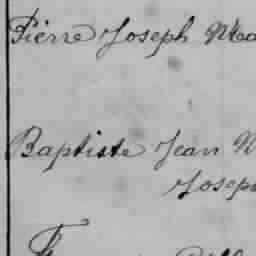 Pierre Joseph
Baptiste Jean
Joseph